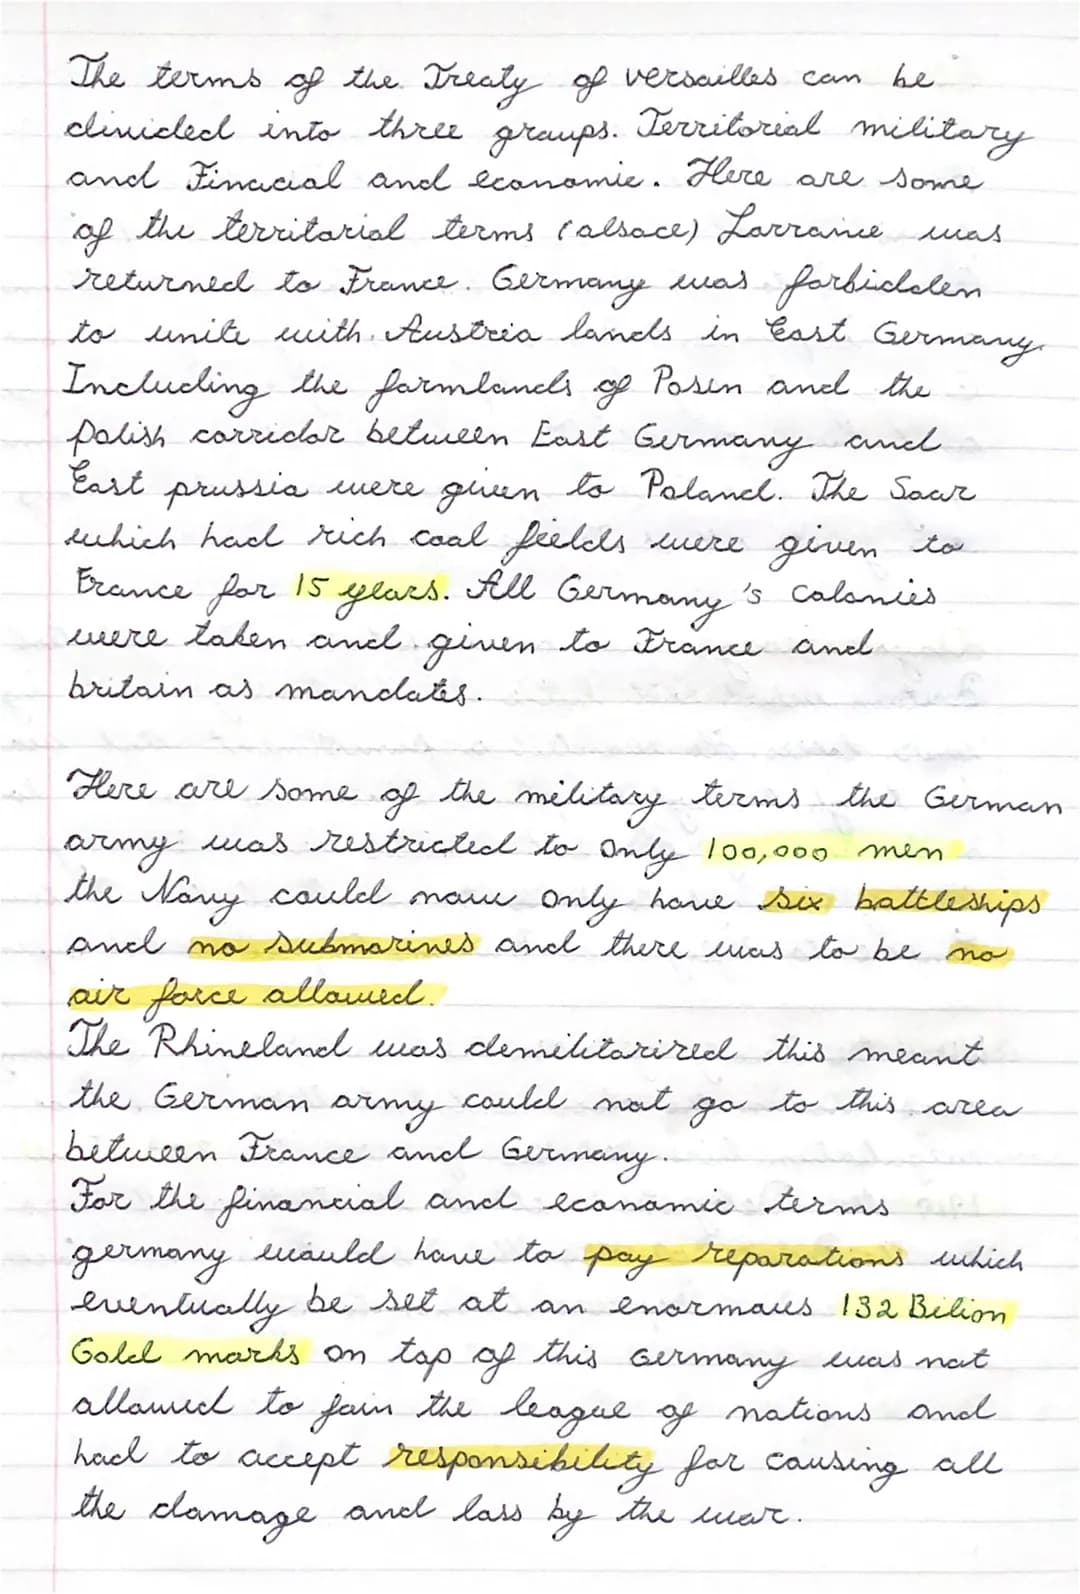 The terms of the Treaty of versailles can be
divided into three groups. Territorial military
and Finacial and economic. Here are some
of the territorial terms (alsace) Lorraine was
returned to France. Germany was forbidden
to unite with Austria lands in East Germany.
Including the farmlands of Posen and the
polish corridor between East Germany and
East prussia were given to Poland. The Saar
which had rich coal fields were given to
France for 15 years. All Germany's colonies
were taken and given to France and
britain as mandates.
Here are some of the military terms the German
army was restricted to only 100,000 men
the Navy could now only have six battleships
and no submarines and there was to be no
air force allowed.
The Rhineland was demilitarized this meant
the German army could not go to this area
between France and Germany.
For the financial and economic terms
germany would have to pay reparations which
eventually be set at an enormous 132 Bilion
Gold marks on top of this Germany was not
allowed to join the league of nations and
had to accept responsibility for causing all
the damage and loss by the war.